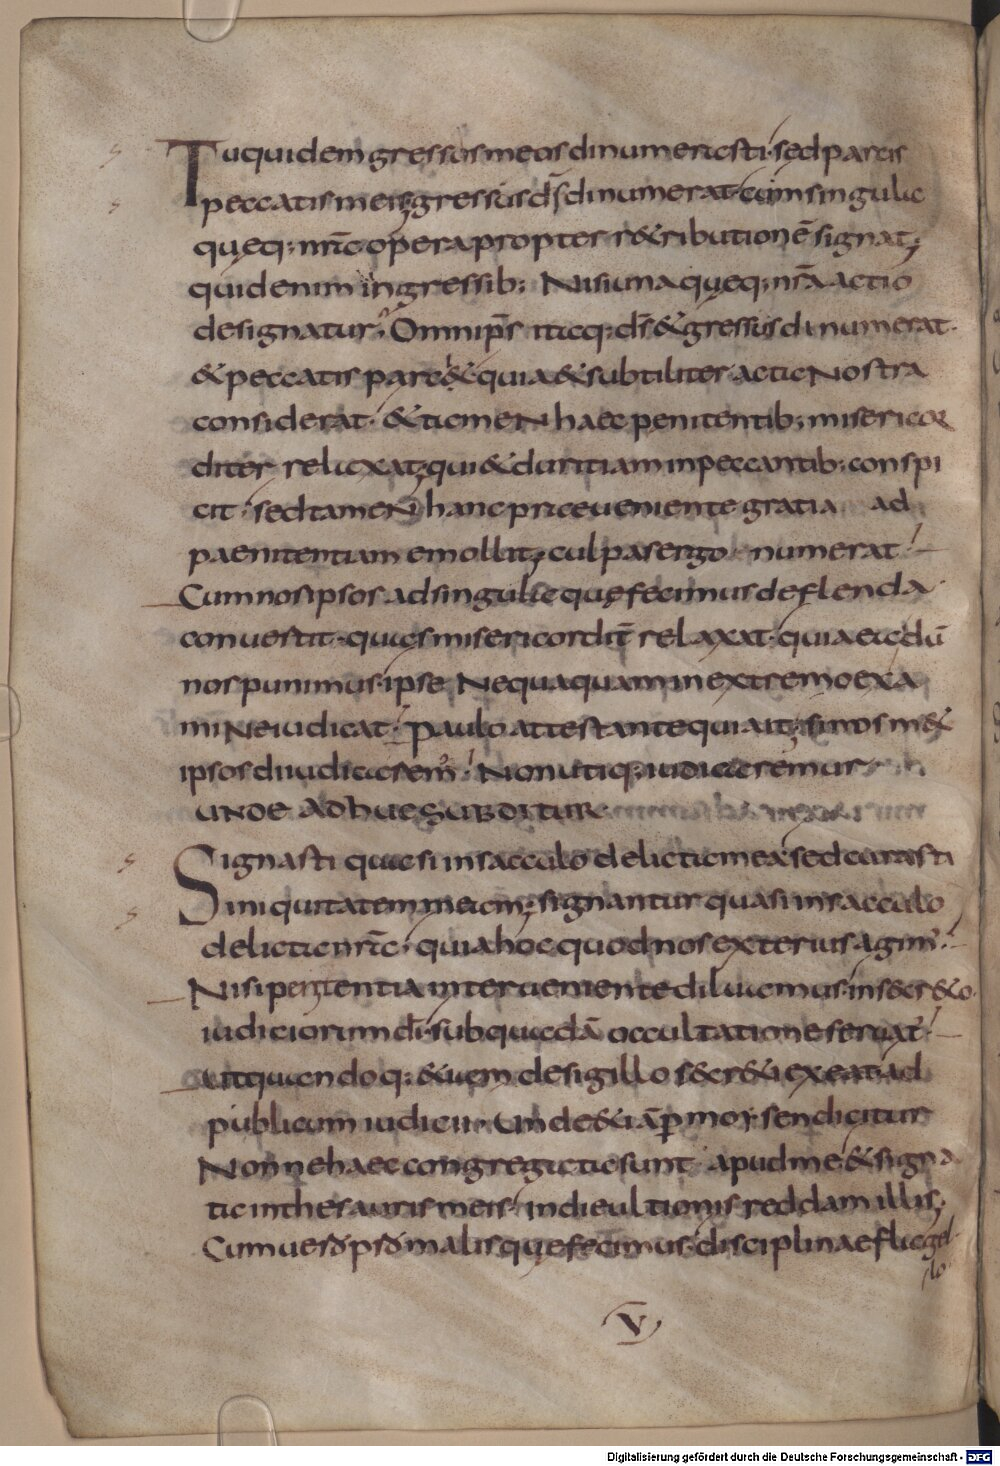 Tu quidem gressus meos dinumerasti · sed parcis
peccatis meis; gressus d̄s dinumerat · cum singula
quęq; nr̄a opera propter r&ributionē signat;
quid enim in gressib; Nisi una quęq; nr̄a actio
designatur; Omnip̄s itaq; d̄s & gressus dinumerat ·
& peccatis parc& quia & subtiliter acta Nostra
considerat · & tamen haec penitentib; misericor
diter relaxat; qui & duritiam in peccantib; conspi
cit · sed tamen hanc praeueniente gratia ad
paenitentiam emollit; culpas ergo numerat
Cum nos ipsos ad singula quę fecimus deflenda
conuertit · quas misericordit̄ relaxat · quia ea dū
nos punimus · ipse Nequaquam in extremo exa
mine iudicat · paulo attestante qui ait; si nos m&
ipsos diiudicasem' · Non utiq; iudicaremur
unde adhuc subditur
Signasti quasi in sacculo delicta mea sed curasti
iniquitatem meam; signantur quasi in sacculo
delicta nr̄a · quia hoc quod nos exterius agim'
Nisi penitentia interueniente diluamus · in s&cr&o
iudiciorum d̄i · sub quadā occultatione seruat'
ut quandoq; &iam de sigillo s&cr&i exeat ad
publicum iudicii · Unde & iā p̄ moysen dicitur
Nonne haec congregata sunt apud me & signa
ta in thesauris meis · in die ultionis reddam illis;
Cum uero pro malis quę fecimus · disciplinae flagel
lo
V
Digitalisierung gefördert durch die Deutsche Forschungsgemeinschaft - DFG